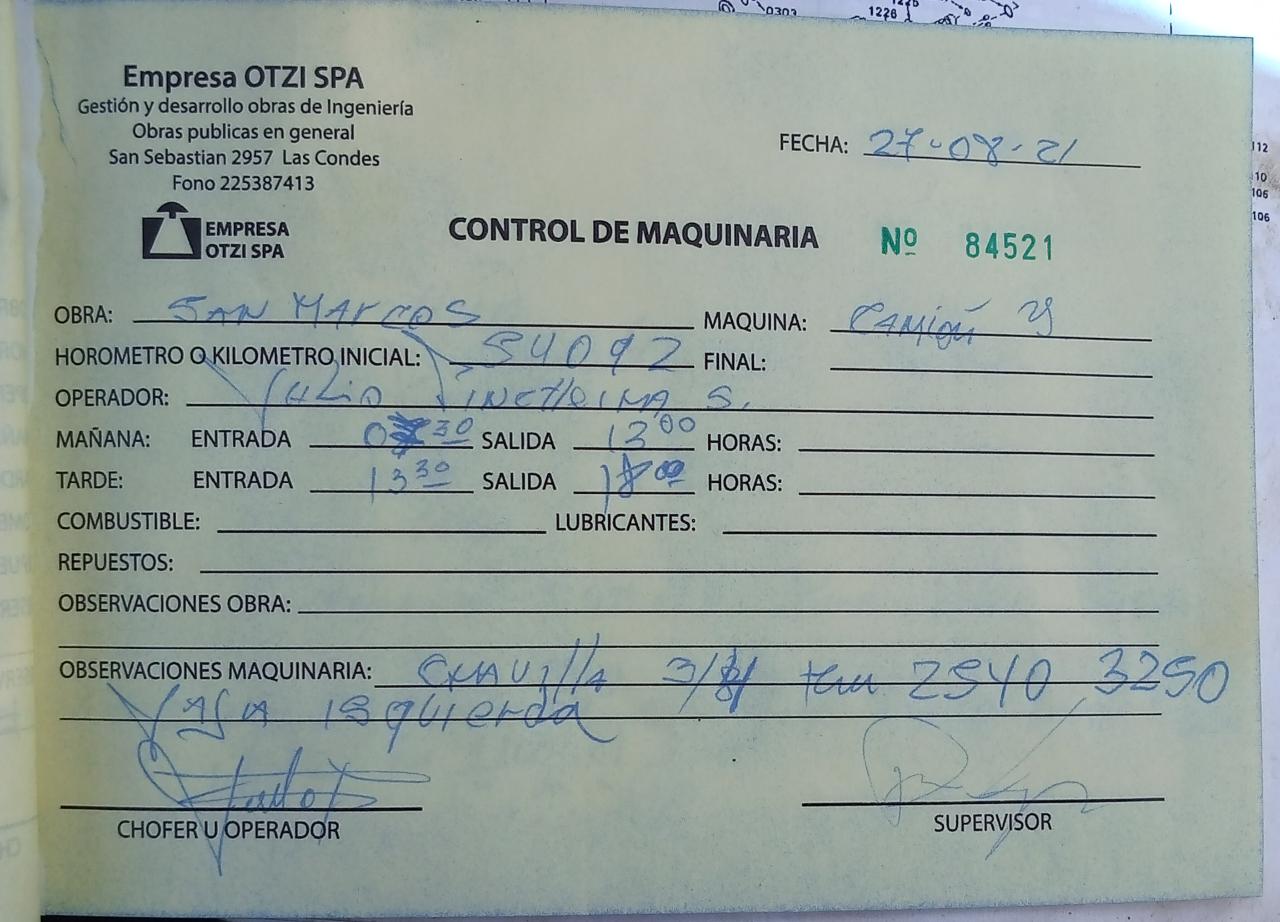 Empresa OTZI SPA
Gestión y desarrollo obras de Ingeniería
Obras publicas en general
San Sebastian 2957 Las Condes
Fono 225387413
FECHA: 27-08-21
EMPRESA
OTZI SPA
CONTROL DE MAQUINARIA Nº 84521
OBRA: SAN MARCOS MAQUINA: CAMIÓN
HOROMETRO O KILOMETRO INICIAL: 54092 FINAL:
OPERADOR: JULIO S.
MAÑANA: ENTRADA 30 SALIDA 13 00 HORAS:
TARDE: ENTRADA 13 30 SALIDA 18 00 HORAS:
COMBUSTIBLE: LUBRICANTES:
REPUESTOS:
OBSERVACIONES OBRA:
OBSERVACIONES MAQUINARIA: GRAVILLA 2540 3250
ISQUIERDA
CHOFER U OPERADOR SUPERVISOR
0303
1226
112
10
106
106